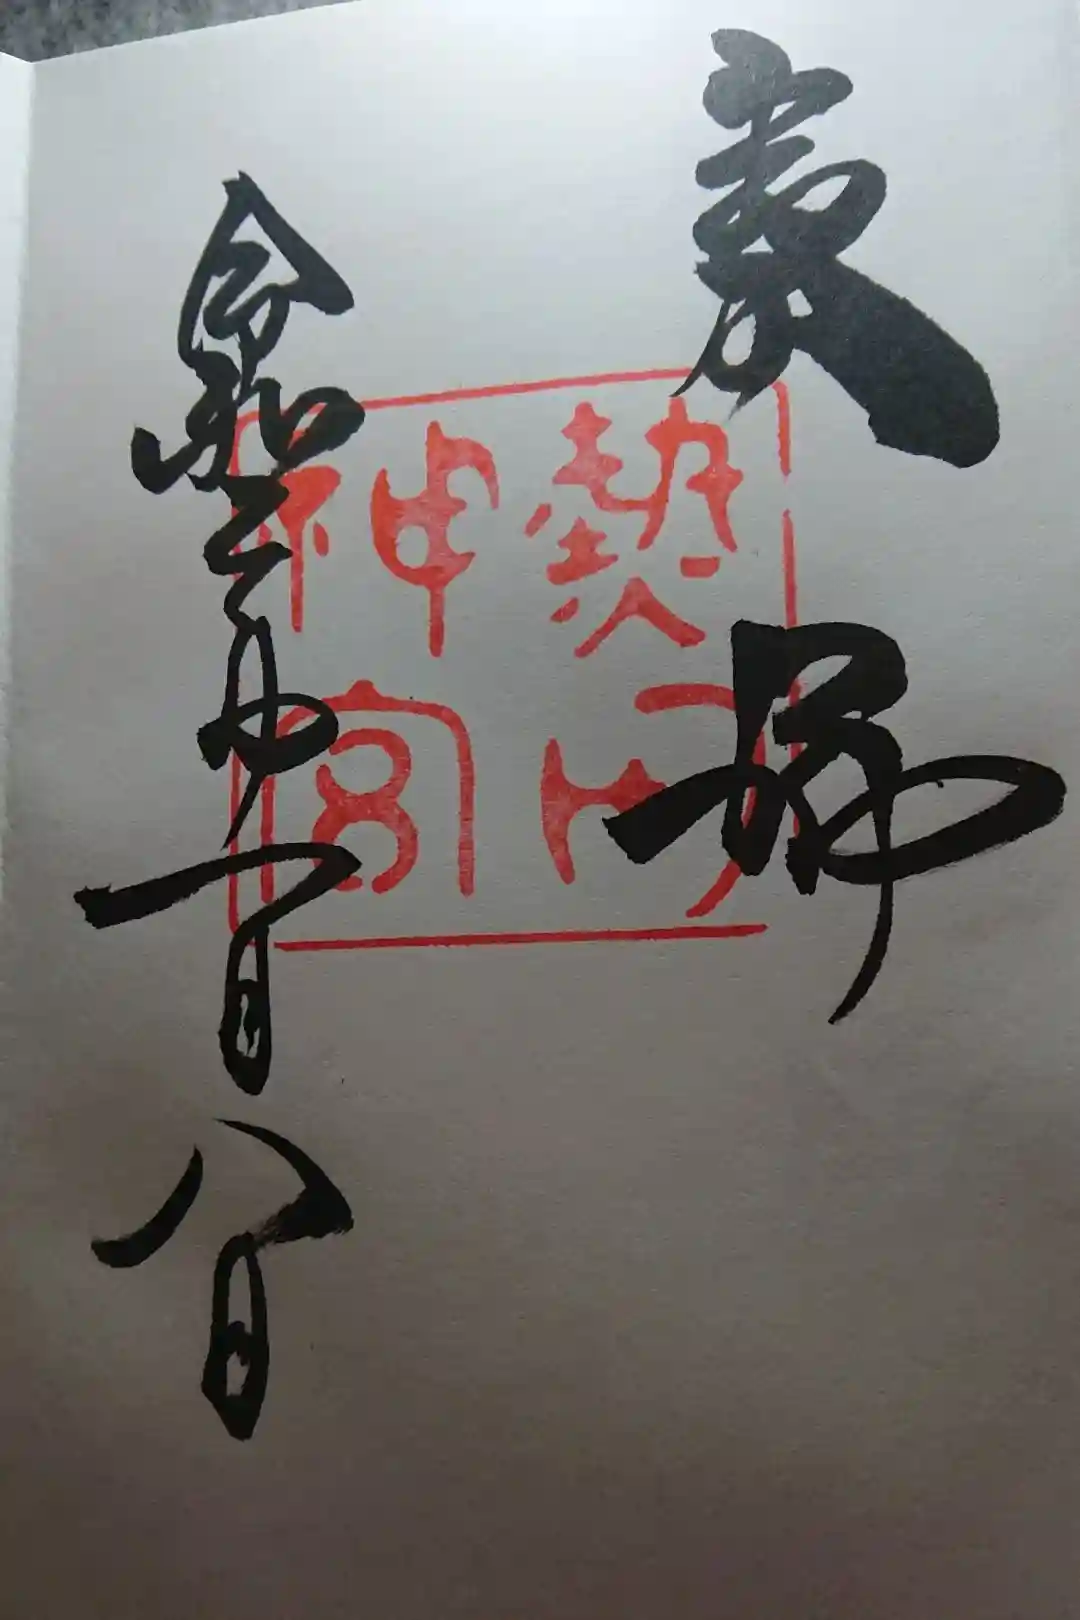 奉拝
熱田
神宮
令和三年一月八日